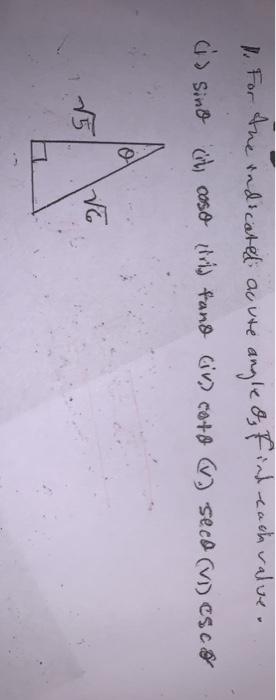 1. For the indicated acute angle θ, Find each value.
(i) sinθ (ii) cosθ (iii) tanθ (iv) cotθ (v) secθ (vi) cscθ
θ
√5
√6